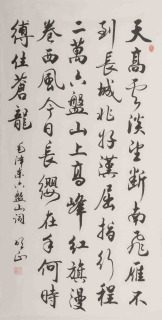 天高雲淡望断南飛雁不
到長城非好漢屈指行程
二萬六盤山上高峰紅旗漫
卷西風今日長纓在手何時
縛住蒼龍 毛澤東六盤山詞